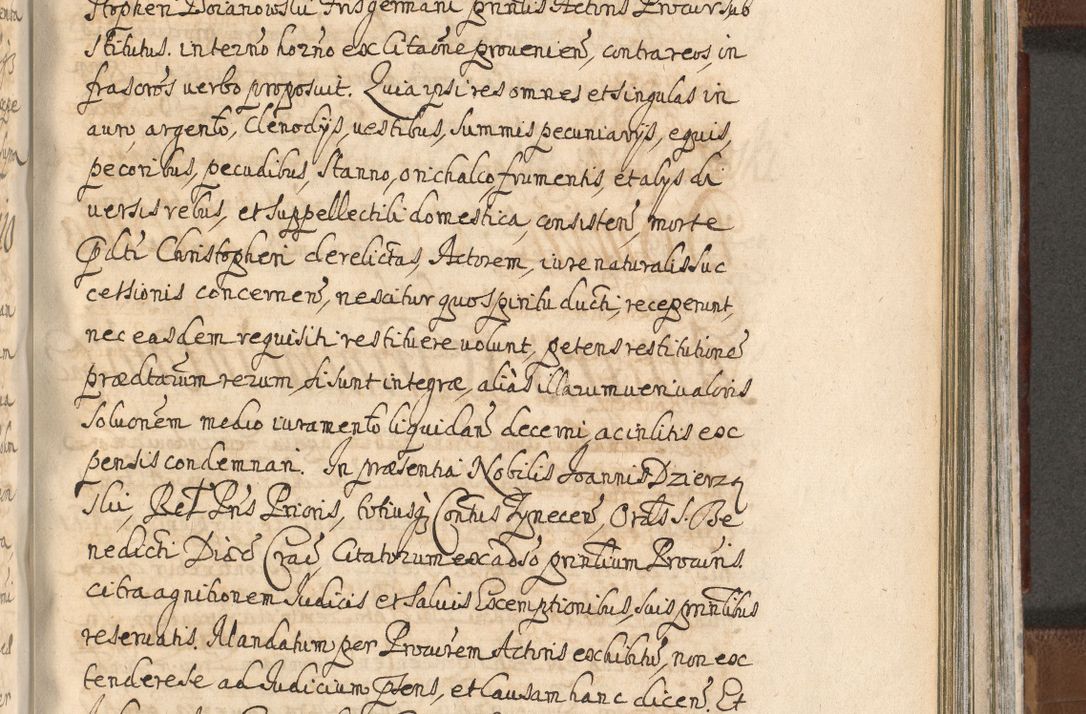 stophen Boianowski Fris germani prntis Actoris Procur sub
stitutus. in termo horno ex Citaone provenien, contra reos, in
frascros verbo proposuit. Quia ipsi res omnes et singulas in
auro, argento, Clenodijs, vestibus, summis pecuniarijs, equis,
pecoribus, pecudibus, stanno, orichalco frumentis, et alijs di
versis rebus, et suppellectili domestica, consisten, morte
Pdti Christopheri derelictas, Actorem, iure naturalis suc
cessionis concernen, nescitur quo spiritu ducti, receperunt,
nec easdem requisiti restituere volunt, petens restitutione
prædtarum rerum, si sunt integræ, aliàs illarum veri valoris
solutionem medio iuramento liquidan decerni, ac in litis ex
pensis condemnari. In præsentia Nobilis Joannis Dzierzą
ski, Ret Pris Prioris, totiusq Contus Tynecen, Ordis S. Be
nedicti Diœc Crac, Citatorum ex adso prntium Procuris.
citra agnitionem Judicis et salvis Exceptionibus, suis prntibus
reservatis. Mandatum per Procurem Actoris exhibitu, non ex
tendere se ad Judicium Psens, et Causam hanc dicen. Et